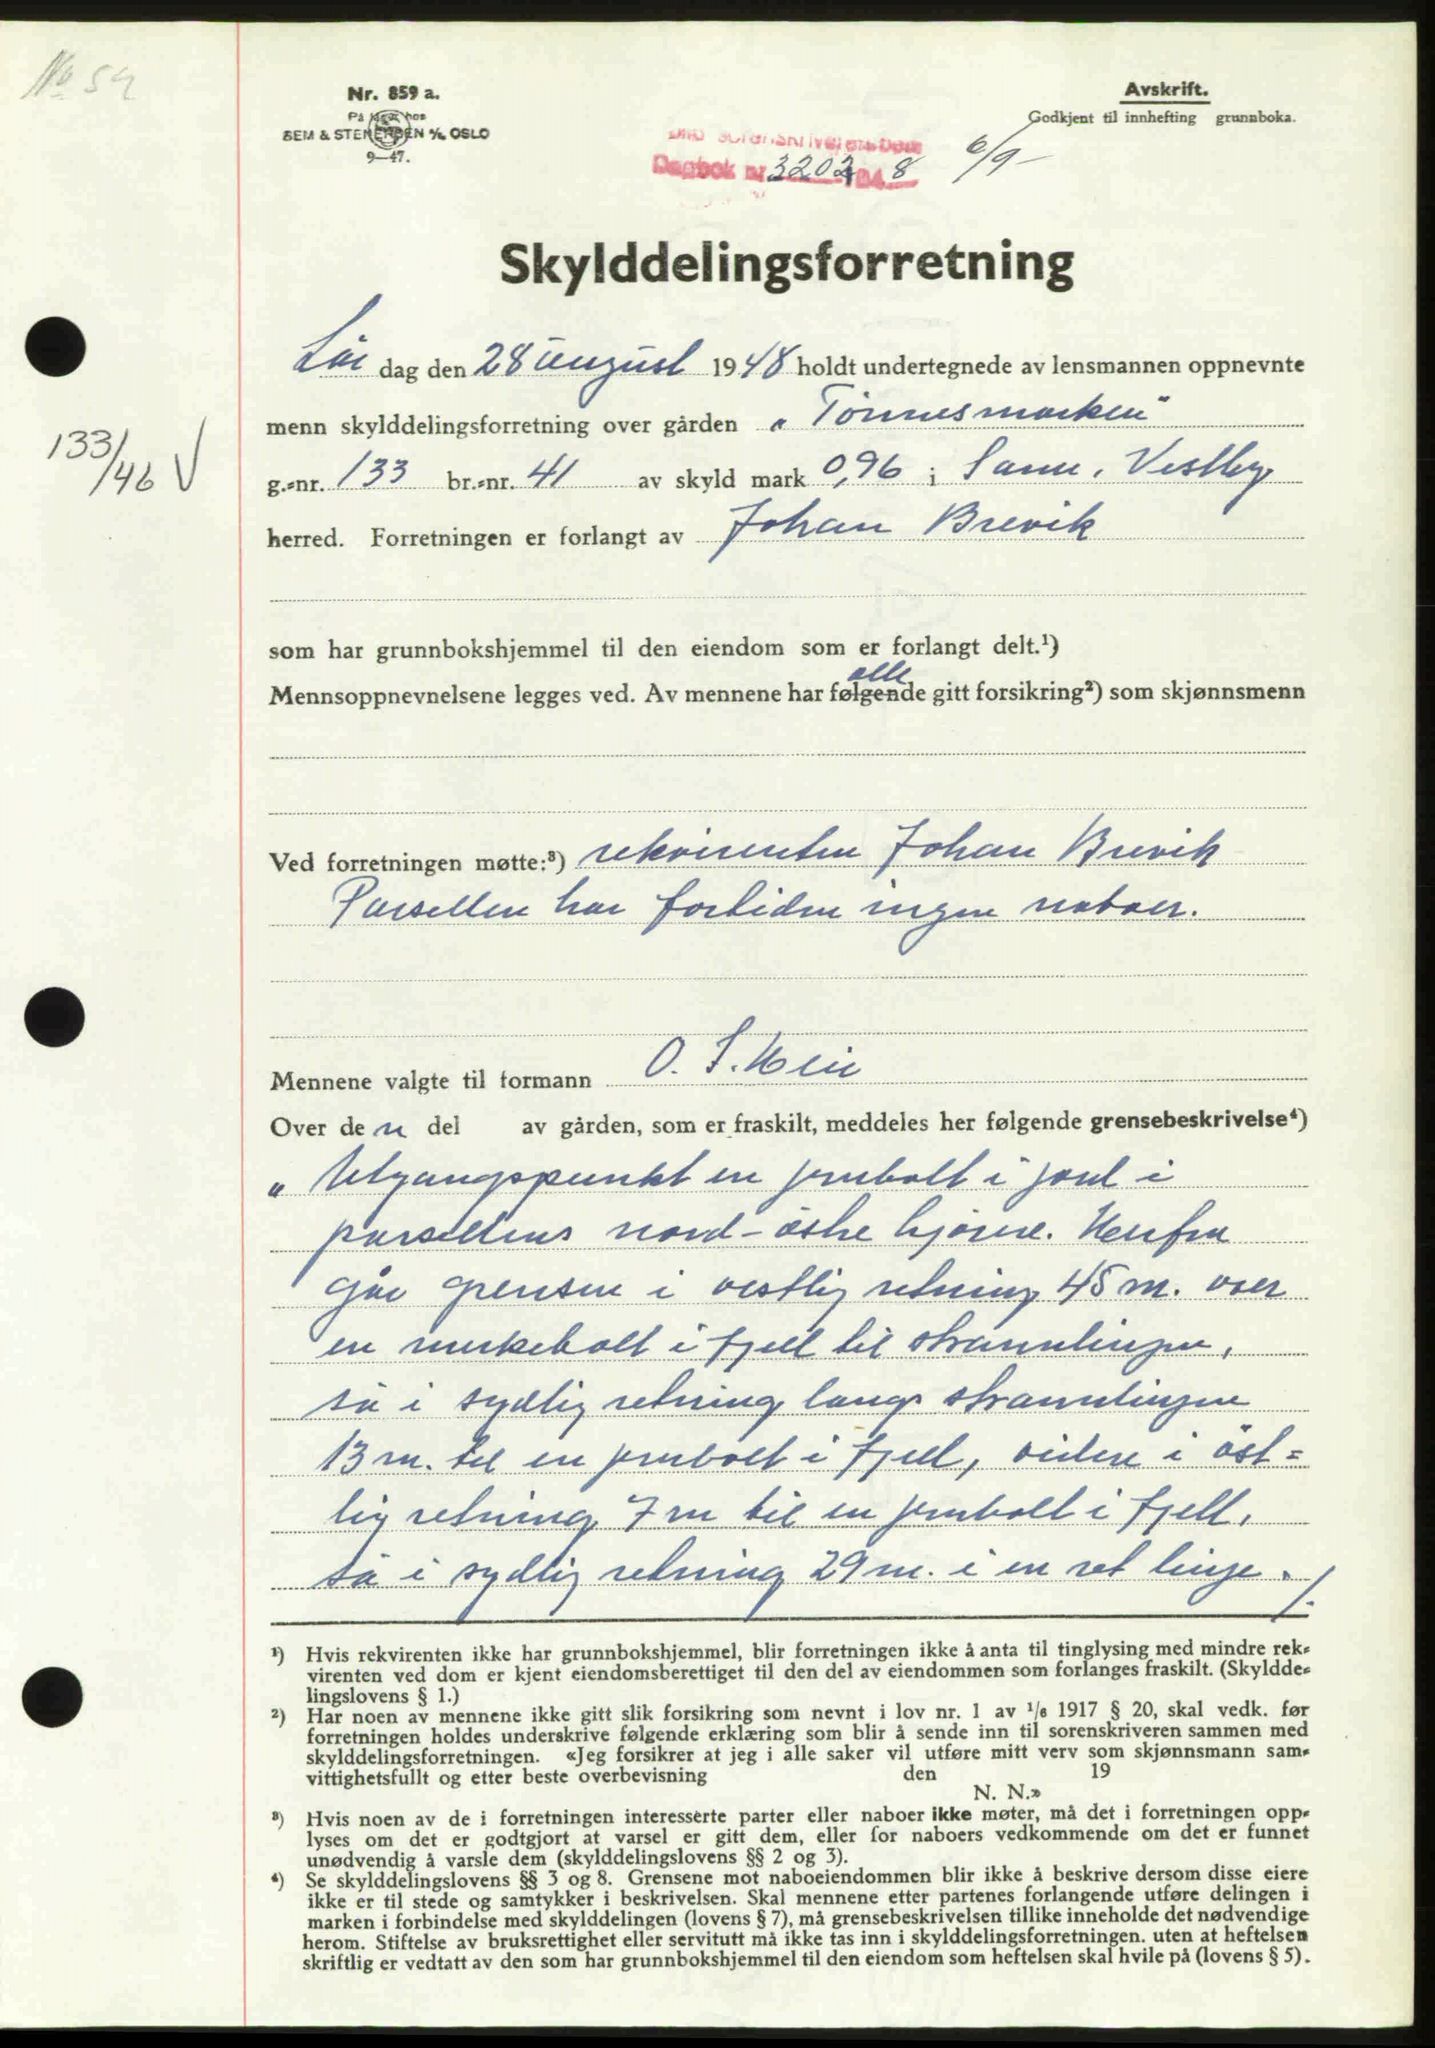 No 54
Nr. 859 a.
På lager hos
SEM & STENERSEN A/S OSLO
9—47.
Avskrift.
Godkjent til innhefting grunnboka.
sorenskriverembede
Dagbok nr 3202 194 8 6/9-
Skylddelingsforretning
Lör dag den 28 august 1948 holdt undertegnede av lensmannen oppnevnte
menn skylddelingsforretning over gården „Tönnesmarken"
133/46 V
g.-nr. 133 br.-nr. 41 av skyld mark 0,96 i Vestby
herred. Forretningen er forlangt av Johan Brevik
som har grunnbokshjemmel til den eiendom som er forlangt delt.¹)
alle
Mennsoppnevnelsene legges ved. Av mennene har følgende gitt forsikring²) som skjønnsmenn
Ved forretningen møtte:³) rekvirenten Johan Brevik
Parsellen har fortiden ingen naboer.
Mennene valgte til formann O. S.
Over de n del av gården, som er fraskilt, meddeles her følgende grensebeskrivelse⁴)
„Utgangspunkt en jernbolt i jord i
parsellens nord-östre hjörne. Herfra
går grensen i vestlig retning 45 m. over
en merkebolt i fjell til strandlinjen,
så i sydlig retning langs strandlinjen
13 m. til en jernbolt i fjell, videre i öst=
lig retning 7 m til en jernbolt i fjell,
så i sydlig retning 29 m. i en ret linje. ./.
¹) Hvis rekvirenten ikke har grunnbokshjemmel, blir forretningen ikke å anta til tinglysing med mindre rek-
virenten ved dom er kjent eiendomsberettiget til den del av eiendommen som forlanges fraskilt. (Skyldde-
lingslovens § 1.)
²) Har noen av mennene ikke gitt slik forsikring som nevnt i lov nr. 1 av 1/6 1917 § 20, skal vedk. før
forretningen holdes underskrive følgende erklæring som blir å sende inn til sorenskriveren sammen med
skylddelingsforretningen. «Jeg forsikrer at jeg i alle saker vil utføre mitt verv som skjønnsmann sam-
vittighetsfullt og etter beste overbevisning den 19
N. N.»
³) Hvis noen av de i forretningen interesserte parter eller naboer ikke møter, må det i forretningen opp-
lyses om det er godtgjort at varsel er gitt dem, eller for naboers vedkommende om det er funnet
unødvendig å varsle dem (skylddelingslovens §§ 2 og 3).
⁴) Se skylddelingslovens §§ 3 og 8. Grensene mot naboeiendommen blir ikke å beskrive dersom disse eiere
ikke er til stede og samtykker i beskrivelsen. Skal mennene etter partenes forlangende utføre delingen i
marken i forbindelse med skylddelingen (lovens § 7), må grensebeskrivelsen tillike inneholde det nødvendige
herom. Stiftelse av bruksrettighet eller servitutt må ikke tas inn i skylddelingsforretningen. uten at heftelsen
skriftlig er vedtatt av den som har grunnbokshjemmel til den eiendom som heftelsen skal hvile på (lovens § 5).